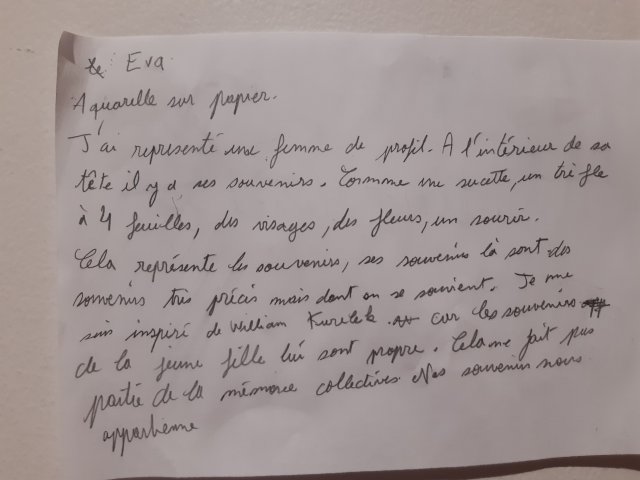 Eva
Aquarelle sur papier.
J'ai représenté une femme de profil. A l'intérieur de sa
tête il y a ses souvenirs. Comme une sucette, un trèfle
à 4 feuilles, des visages, des fleurs, un sourir.
Cela représente les souvenirs, ses souvenirs là sont des
souvenirs très précis mais dont on se souvient. Je me
suis inspiré de William Kurelek. car les souvenirs
de la jeune fille lui sont propre. Cela ne fait pas
partie de la mémoire collectives. Nos souvenirs nous
appartienne